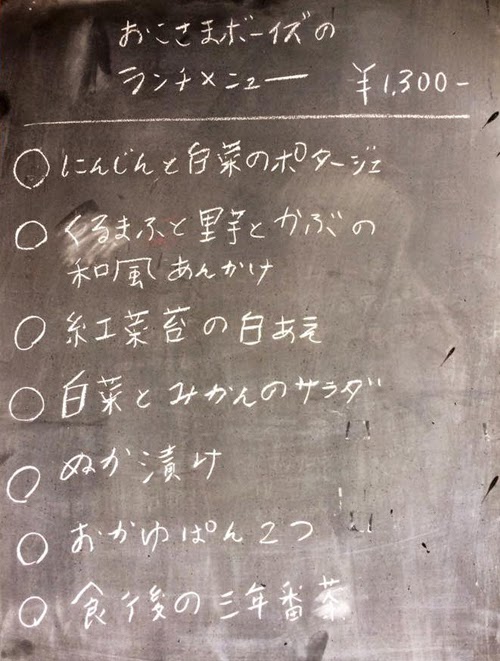 おこさまボーイズの
ランチメニュー ¥1,300-
○ にんじんと白菜のポタージュ
○ くるまふと里芋とかぶの
和風あんかけ
○ 紅菜苔の白あえ
○ 白菜とみかんのサラダ
○ ぬか漬け
○ おかゆぱん2つ
○ 食後の三年番茶